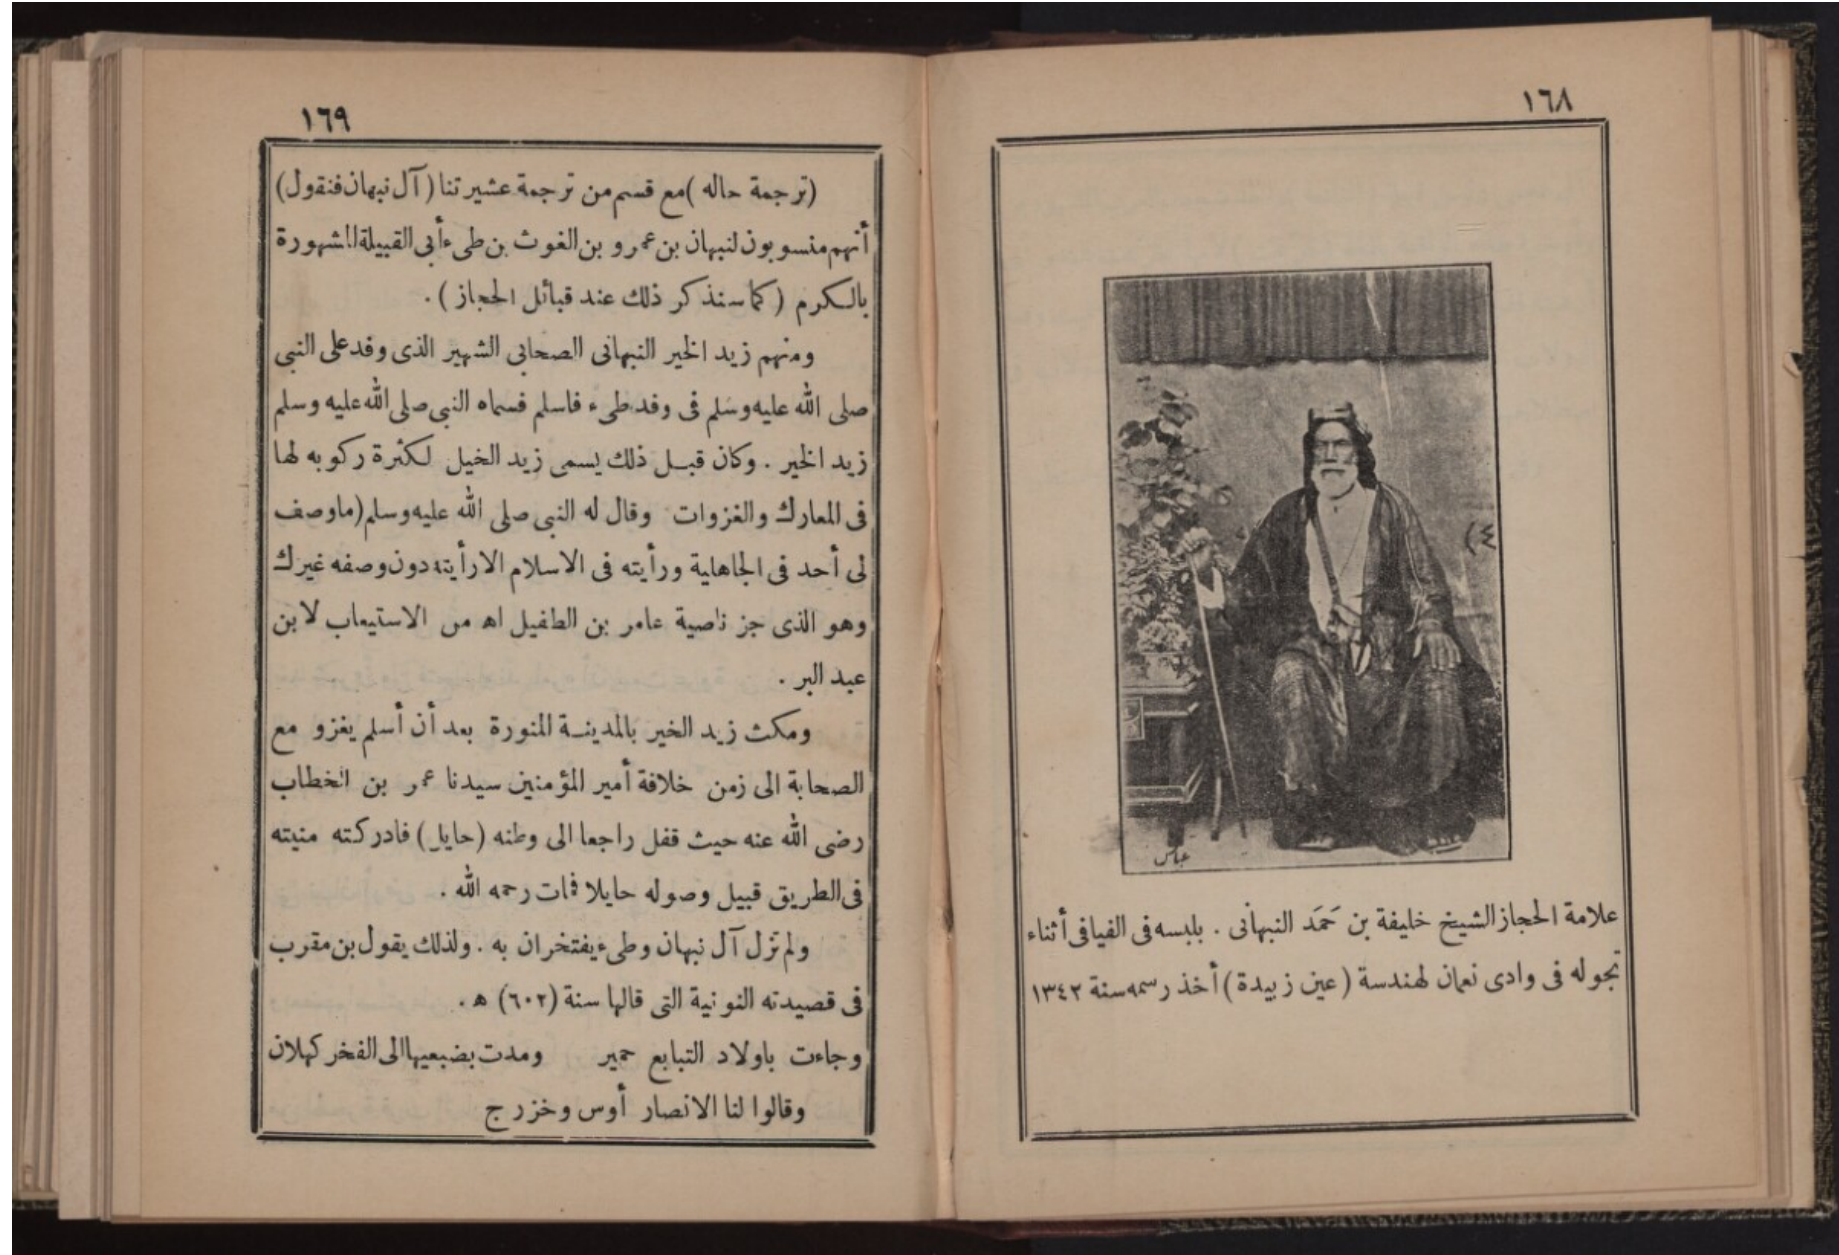 ١٦٨
عباس
علامة الحجاز الشيخ خليفة بن حَمَد النبهانى . بلبسه فى الفيافى أثناء
تجوله فى وادى نعمان لهندسة (عين زبيدة) أخذ رسمه سنة ١٣٤٢
١٦٩
(ترجمة حاله) مع قسم من ترجمة عشيرتنا (آل نبهان فنقول)
أنهم منسوبون لنبهان بن عمرو بن الغوث بن طىء أبى القبيلة المشهورة
بالكرم (كما سنذكر ذلك عند قبائل الحجاز) .
ومنهم زيد الخير النبهانى الصحابى الشهير الذى وفد على النبى
صلى الله عليه وسلم فى وفد طىء فاسلم فسماه النبى صلى الله عليه وسلم
زيد الخير . وكان قبل ذلك يسمى زيد الخيل لكثرة ركوبه لها
فى المعارك والغزوات وقال له النبى صلى الله عليه وسلم (ماوصف
لى أحد فى الجاهلية ورأيته فى الاسلام الا رأيته دون وصفه غيرك
وهو الذى جز ناصية عامر بن الطفيل اه من الاستيعاب لابن
عبد البر .
ومكث زيد الخير بالمدينة المنورة بعد أن أسلم يغزو مع
الصحابة الى زمن خلافة أمير المؤمنين سيدنا عمر بن الخطاب
رضى الله عنه حيث قفل راجعا الى وطنه (حايل) فادركته منيته
فى الطريق قبيل وصوله حايلا فمات رحمه الله .
ولم تزل آل نبهان وطىء يفتخران به . ولذلك يقول بن مقرب
فى قصيدته النونية التى قالها سنة (٦٠٢) ه .
وجاءت باولاد التبابع حمير ومدت بضبعيها الى الفخر كهلان
وقالوا لنا الانصار أوس وخزرج